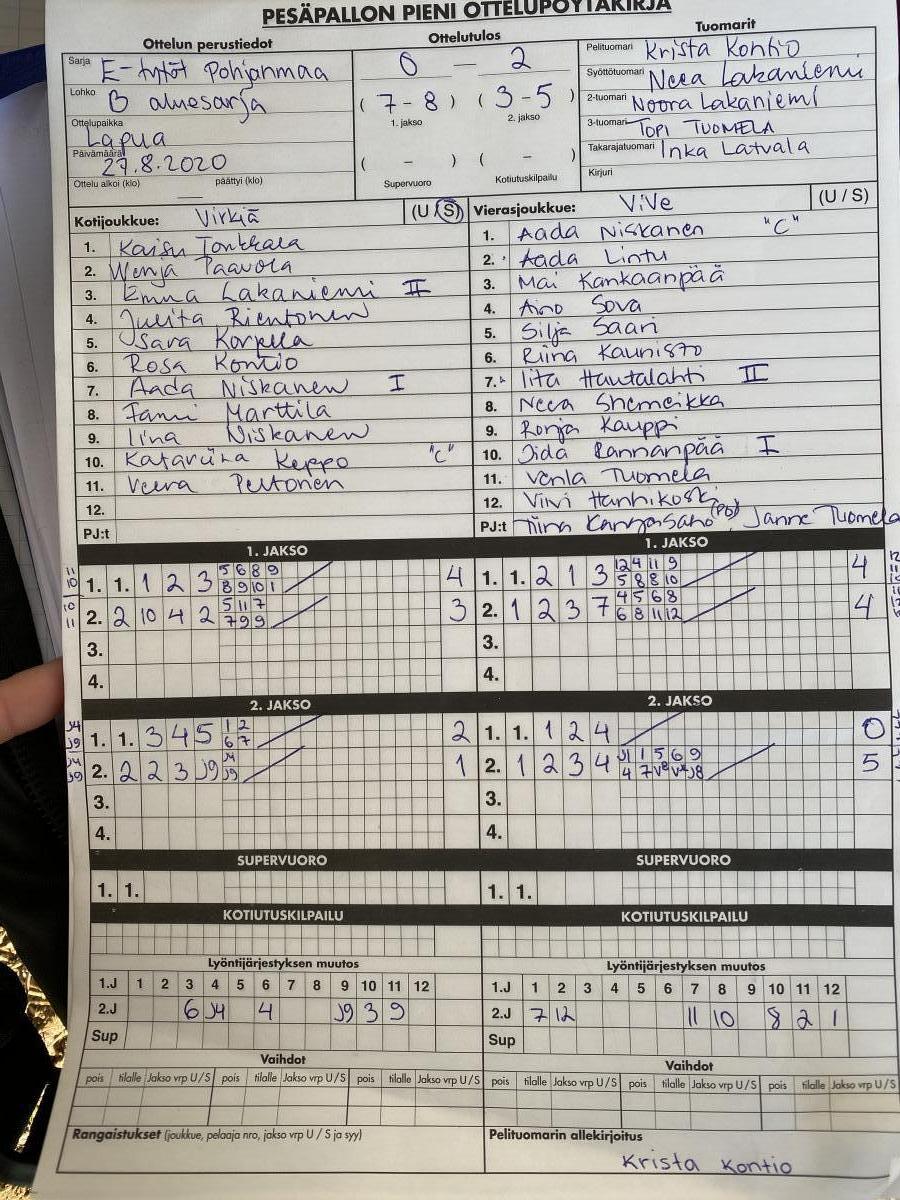 PESÄPALLON PIENI OTTELUPÖYTÄKIRJA
Ottelun perustiedot
Sarja E-tytöt Pohjanmaa
Lohko B aluesarja
Ottelupaikka Lapua
Päivämäärä 27.8.2020
Ottelu alkoi (klo) päättyi (klo)
Ottelutulos
0 — 2
( 7 - 8 ) ( 3 - 5 )
1. jakso 2. jakso
( - ) ( - )
Supervuoro Kotiutuskilpailu
Tuomarit
Pelituomari Krista Kontio
Syöttötuomari Neea Lakaniemi
2-tuomari Noora Lakaniemi
3-tuomari TOPI TUOMELA
Takarajatuomari Inka Latvala
Kirjuri
Kotijoukkue: Virkiä (U/S)
1. Kaisu Tonkkala
2. Wenja Paavola
3. Emma Lakaniemi II
4. Julita Rientonen
5. Sara Korpela
6. Rosa Kontio
7. Aada Niskanen I
8. Fanni Marttila
9. Iina Niskanen
10. Katariina Keppo "C"
11. Veera Peltonen
12.
PJ:t
Vierasjoukkue: ViVe (U / S)
1. Aada Niskanen "C"
2. Aada Lintu
3. Mai Kankaanpää
4. Aino Sova
5. Silja Saari
6. Riina Kaunisto
7. Iita Hautalahti II
8. Neea Shemeikka
9. Ronja Kauppi
10. Iida Rannanpää I
11. Venla Tuomela
12. Viivi Hanhikoski
PJ:t Tiina (PJ), Janne Tuomela
1. JAKSO
1. 1. 1 2 3 5 6 8 9 4
8 9 10 1
2. 2 10 4 2 5 11 7 3
7 9 9
3.
4.
1. JAKSO
1. 1. 2 1 3 12 4 11 9 4
5 8 8 10
2. 1 2 3 7 4 5 6 8 4
6 8 11 12
3.
4.
2. JAKSO
1. 1. 3 4 5 1 2 2
6 7
2. 2 2 3 J9 J4 1
J9
3.
4.
2. JAKSO
1. 1. 1 2 4 0
2. 1 2 3 4 J1 1 5 6 9 5
4 7 J8
3.
4.
SUPERVUORO
1. 1.
SUPERVUORO
1. 1.
KOTIUTUSKILPAILU
KOTIUTUSKILPAILU
Lyöntijärjestyksen muutos
1.J 1 2 3 4 5 6 7 8 9 10 11 12
2.J 6 J4 4 J9 3 9
Sup
Lyöntijärjestyksen muutos
1.J 1 2 3 4 5 6 7 8 9 10 11 12
2.J 7 12 11 10 8 2 1
Sup
Vaihdot
pois tilalle Jakso vrp U/S pois tilalle Jakso vrp U/S pois tilalle Jakso vrp U/S
Vaihdot
pois tilalle Jakso vrp U/S pois tilalle Jakso vrp U/S pois tilalle Jakso vrp U/S
Rangaistukset (joukkue, pelaaja nro, jakso vrp U / S ja syy)
Pelituomarin allekirjoitus
Krista Kontio